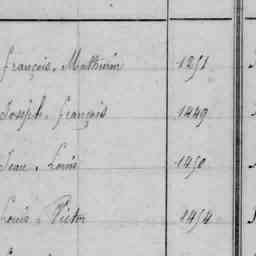 françois, Mathurin 1251
Joseph, françois 1449
Jean, Louis 1450
Louis, Victor 1454